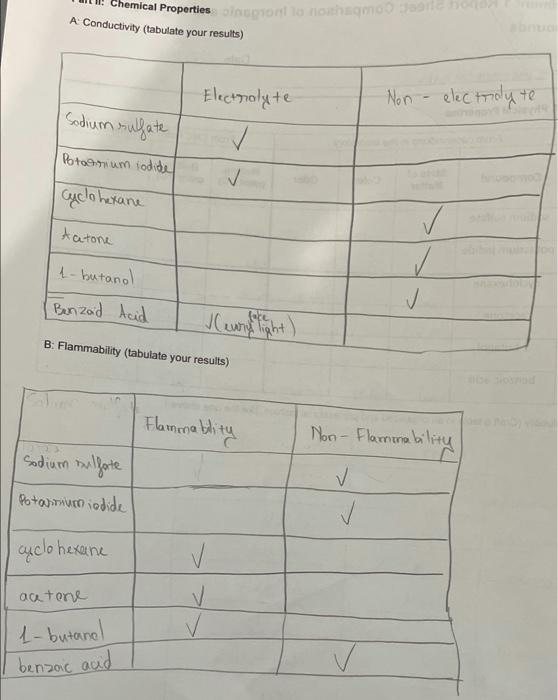 II: Chemical Properties
A: Conductivity (tabulate your results)
Electrolyte Non - electrolyte
Sodium sulfate ✓
Potassium iodide ✓
Cyclohexane ✓
Acetone ✓
1-butanol ✓
Benzoid Acid ✓( light)
B: Flammability (tabulate your results)
Flammablity Non-Flammability
Sodium sulfate ✓
Potassium iodide ✓
cyclo hexane ✓
acetone ✓
1-butanol ✓
benzoic acid ✓